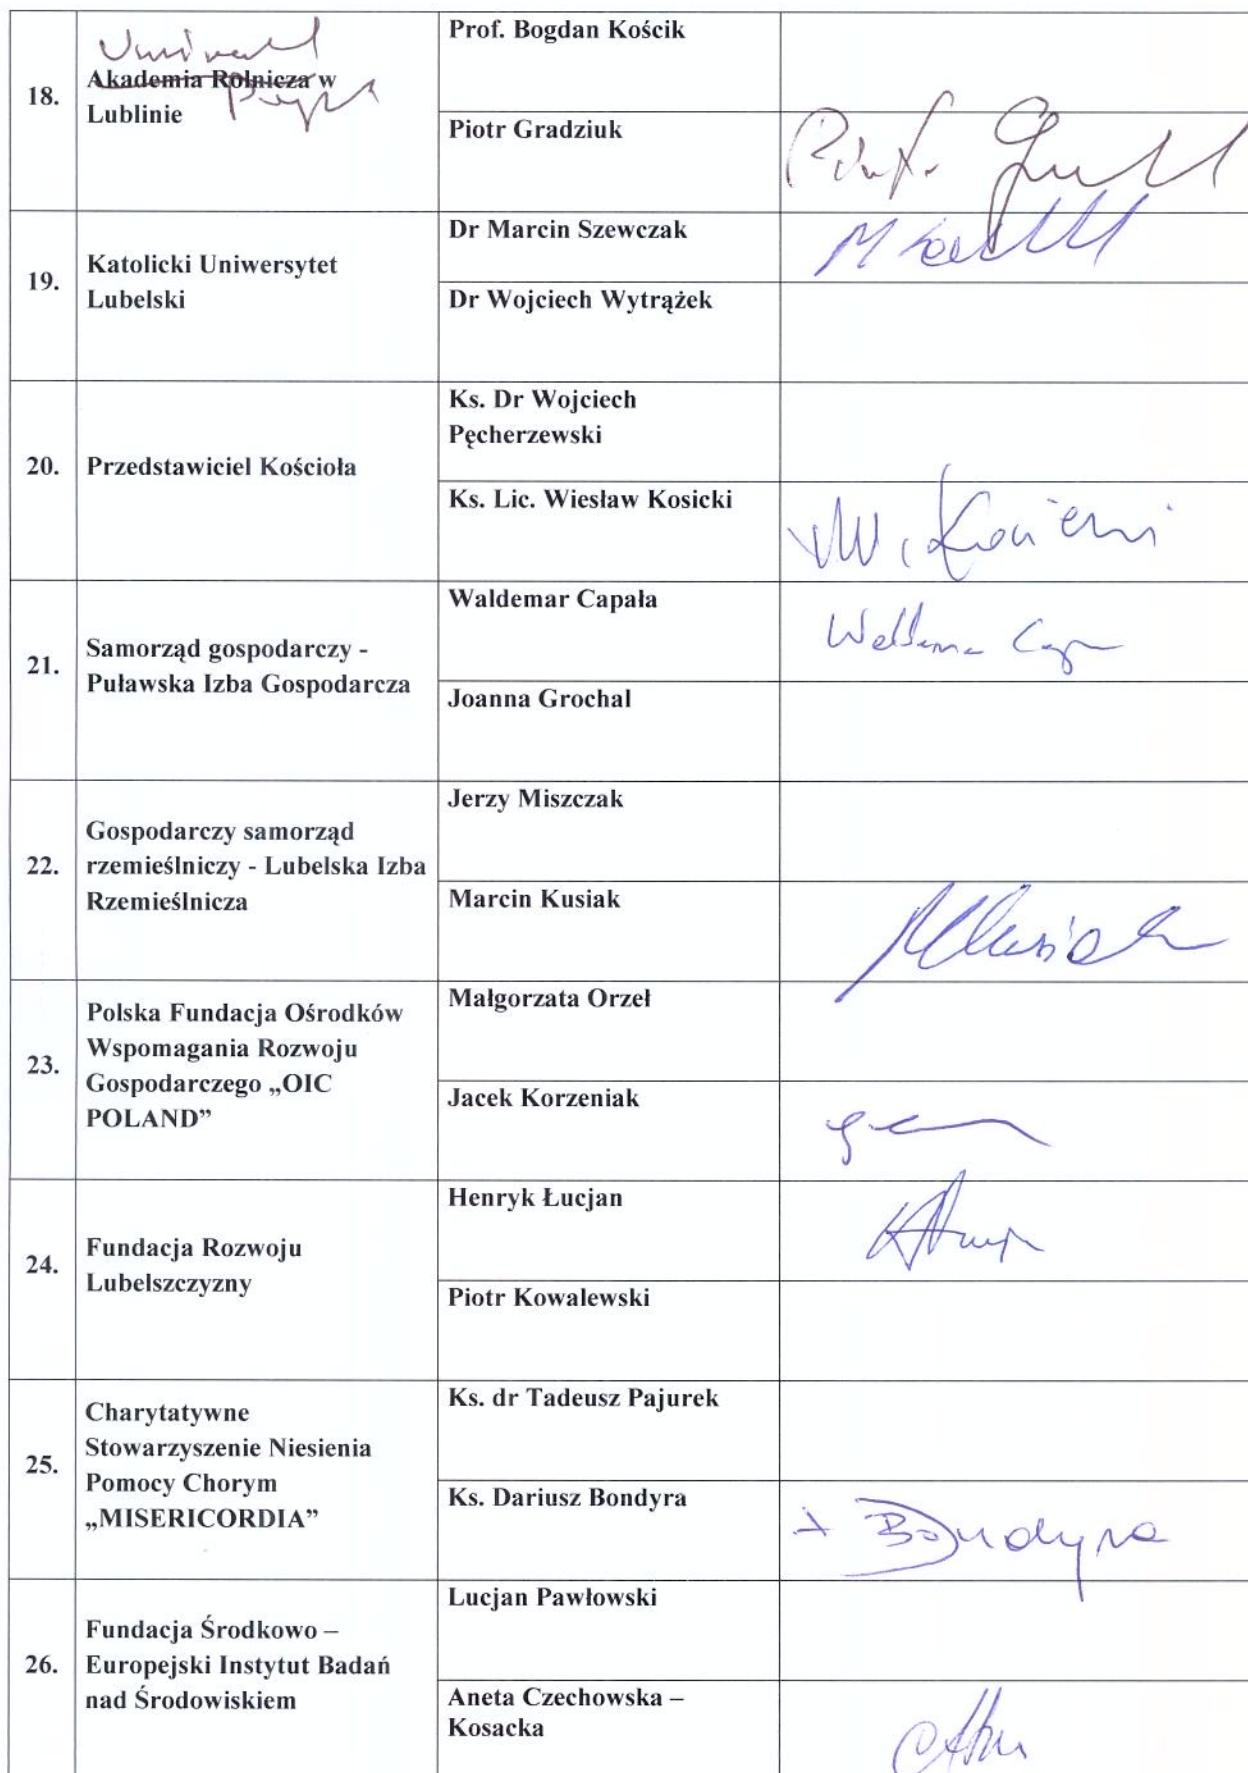 18.
Akademia Rolnicza w
Lublinie
Prof. Bogdan Kościk
Piotr Gradziuk
19.
Katolicki Uniwersytet
Lubelski
Dr Marcin Szewczak
Dr Wojciech Wytrążek
20.
Przedstawiciel Kościoła
Ks. Dr Wojciech
Pęcherzewski
Ks. Lic. Wiesław Kosicki
21.
Samorząd gospodarczy -
Puławska Izba Gospodarcza
Waldemar Capała
Joanna Grochal
22.
Gospodarczy samorząd
rzemieślniczy - Lubelska Izba
Rzemieślnicza
Jerzy Miszczak
Marcin Kusiak
23.
Polska Fundacja Ośrodków
Wspomagania Rozwoju
Gospodarczego „OIC
POLAND”
Małgorzata Orzeł
Jacek Korzeniak
24.
Fundacja Rozwoju
Lubelszczyzny
Henryk Łucjan
Piotr Kowalewski
25.
Charytatywne
Stowarzyszenie Niesienia
Pomocy Chorym
„MISERICORDIA”
Ks. dr Tadeusz Pajurek
Ks. Dariusz Bondyra
Bondyra
26.
Fundacja Środkowo –
Europejski Instytut Badań
nad Środowiskiem
Lucjan Pawłowski
Aneta Czechowska –
Kosacka